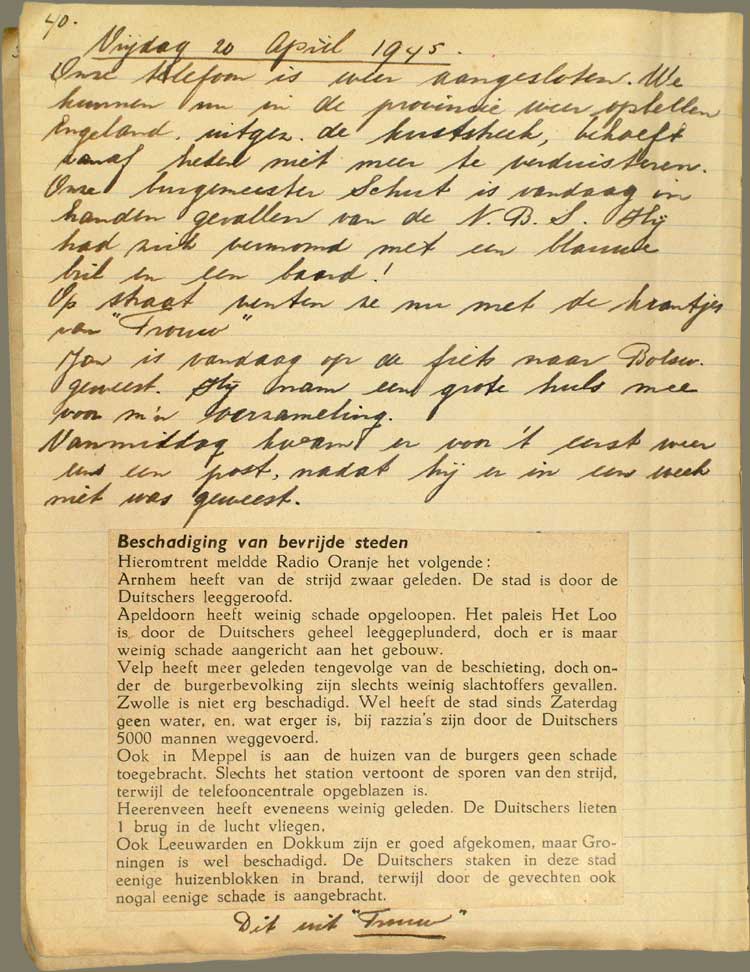 40.
Vrijdag 20 April 1945.
Onze telefoon is weer aangesloten. We
kunnen nu in de provincie weer opbellen
Engeland, uitgez. de kuststreek, behoeft
vanaf heden niet meer te verduisteren.
Onze burgemeester Schut is vandaag in
handen gevallen van de N.B.S. Hij
had zich vermomd met een blauwe
bril en een baard!
Op straat venten ze nu met de krantjes
van "Trouw"
Jan is vandaag op de fiets naar Bolsw.
geweest. Hij nam een grote huls mee
voor m'n verzameling.
Vanmiddag kwam er voor 't eerst weer
eens een post, nadat hij er in een week
niet was geweest.
Beschadiging van bevrijde steden
Hieromtrent meldde Radio Oranje het volgende:
Arnhem heeft van de strijd zwaar geleden. De stad is door de
Duitschers leeggeroofd.
Apeldoorn heeft weinig schade opgeloopen. Het paleis Het Loo
is door de Duitschers geheel leeggeplunderd, doch er is maar
weinig schade aangericht aan het gebouw.
Velp heeft meer geleden tengevolge van de beschieting, doch on-
der de burgerbevolking zijn slechts weinig slachtoffers gevallen.
Zwolle is niet erg beschadigd. Wel heeft de stad sinds Zaterdag
geen water, en, wat erger is, bij razzia's zijn door de Duitschers
5000 mannen weggevoerd.
Ook in Meppel is aan de huizen van de burgers geen schade
toegebracht. Slechts het station vertoont de sporen van den strijd,
terwijl de telefooncentrale opgeblazen is.
Heerenveen heeft eveneens weinig geleden. De Duitschers lieten
1 brug in de lucht vliegen,
Ook Leeuwarden en Dokkum zijn er goed afgekomen, maar Gro-
ningen is wel beschadigd. De Duitschers staken in deze stad
eenige huizenblokken in brand, terwijl door de gevechten ook
nogal eenige schade is aangebracht.
Dit uit "Trouw"